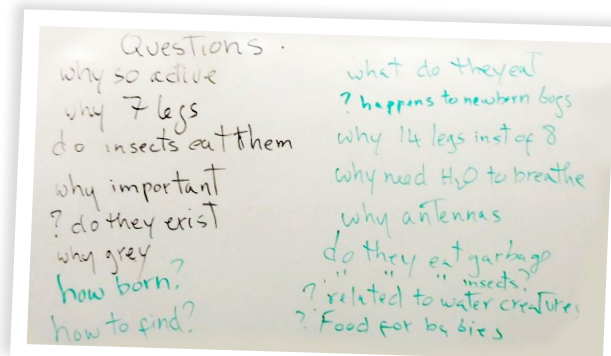 Questions.
why so active
why 7 legs
do insects eat them
why important
? do they exist
why grey
how born?
how to find?
what do they eat
? happens to newborn bogs
why 14 legs inst of 8
why need H₂O to breathe
why antennas
do they eat garbage
" " " insects?
? related to water creatures
? Food for babies